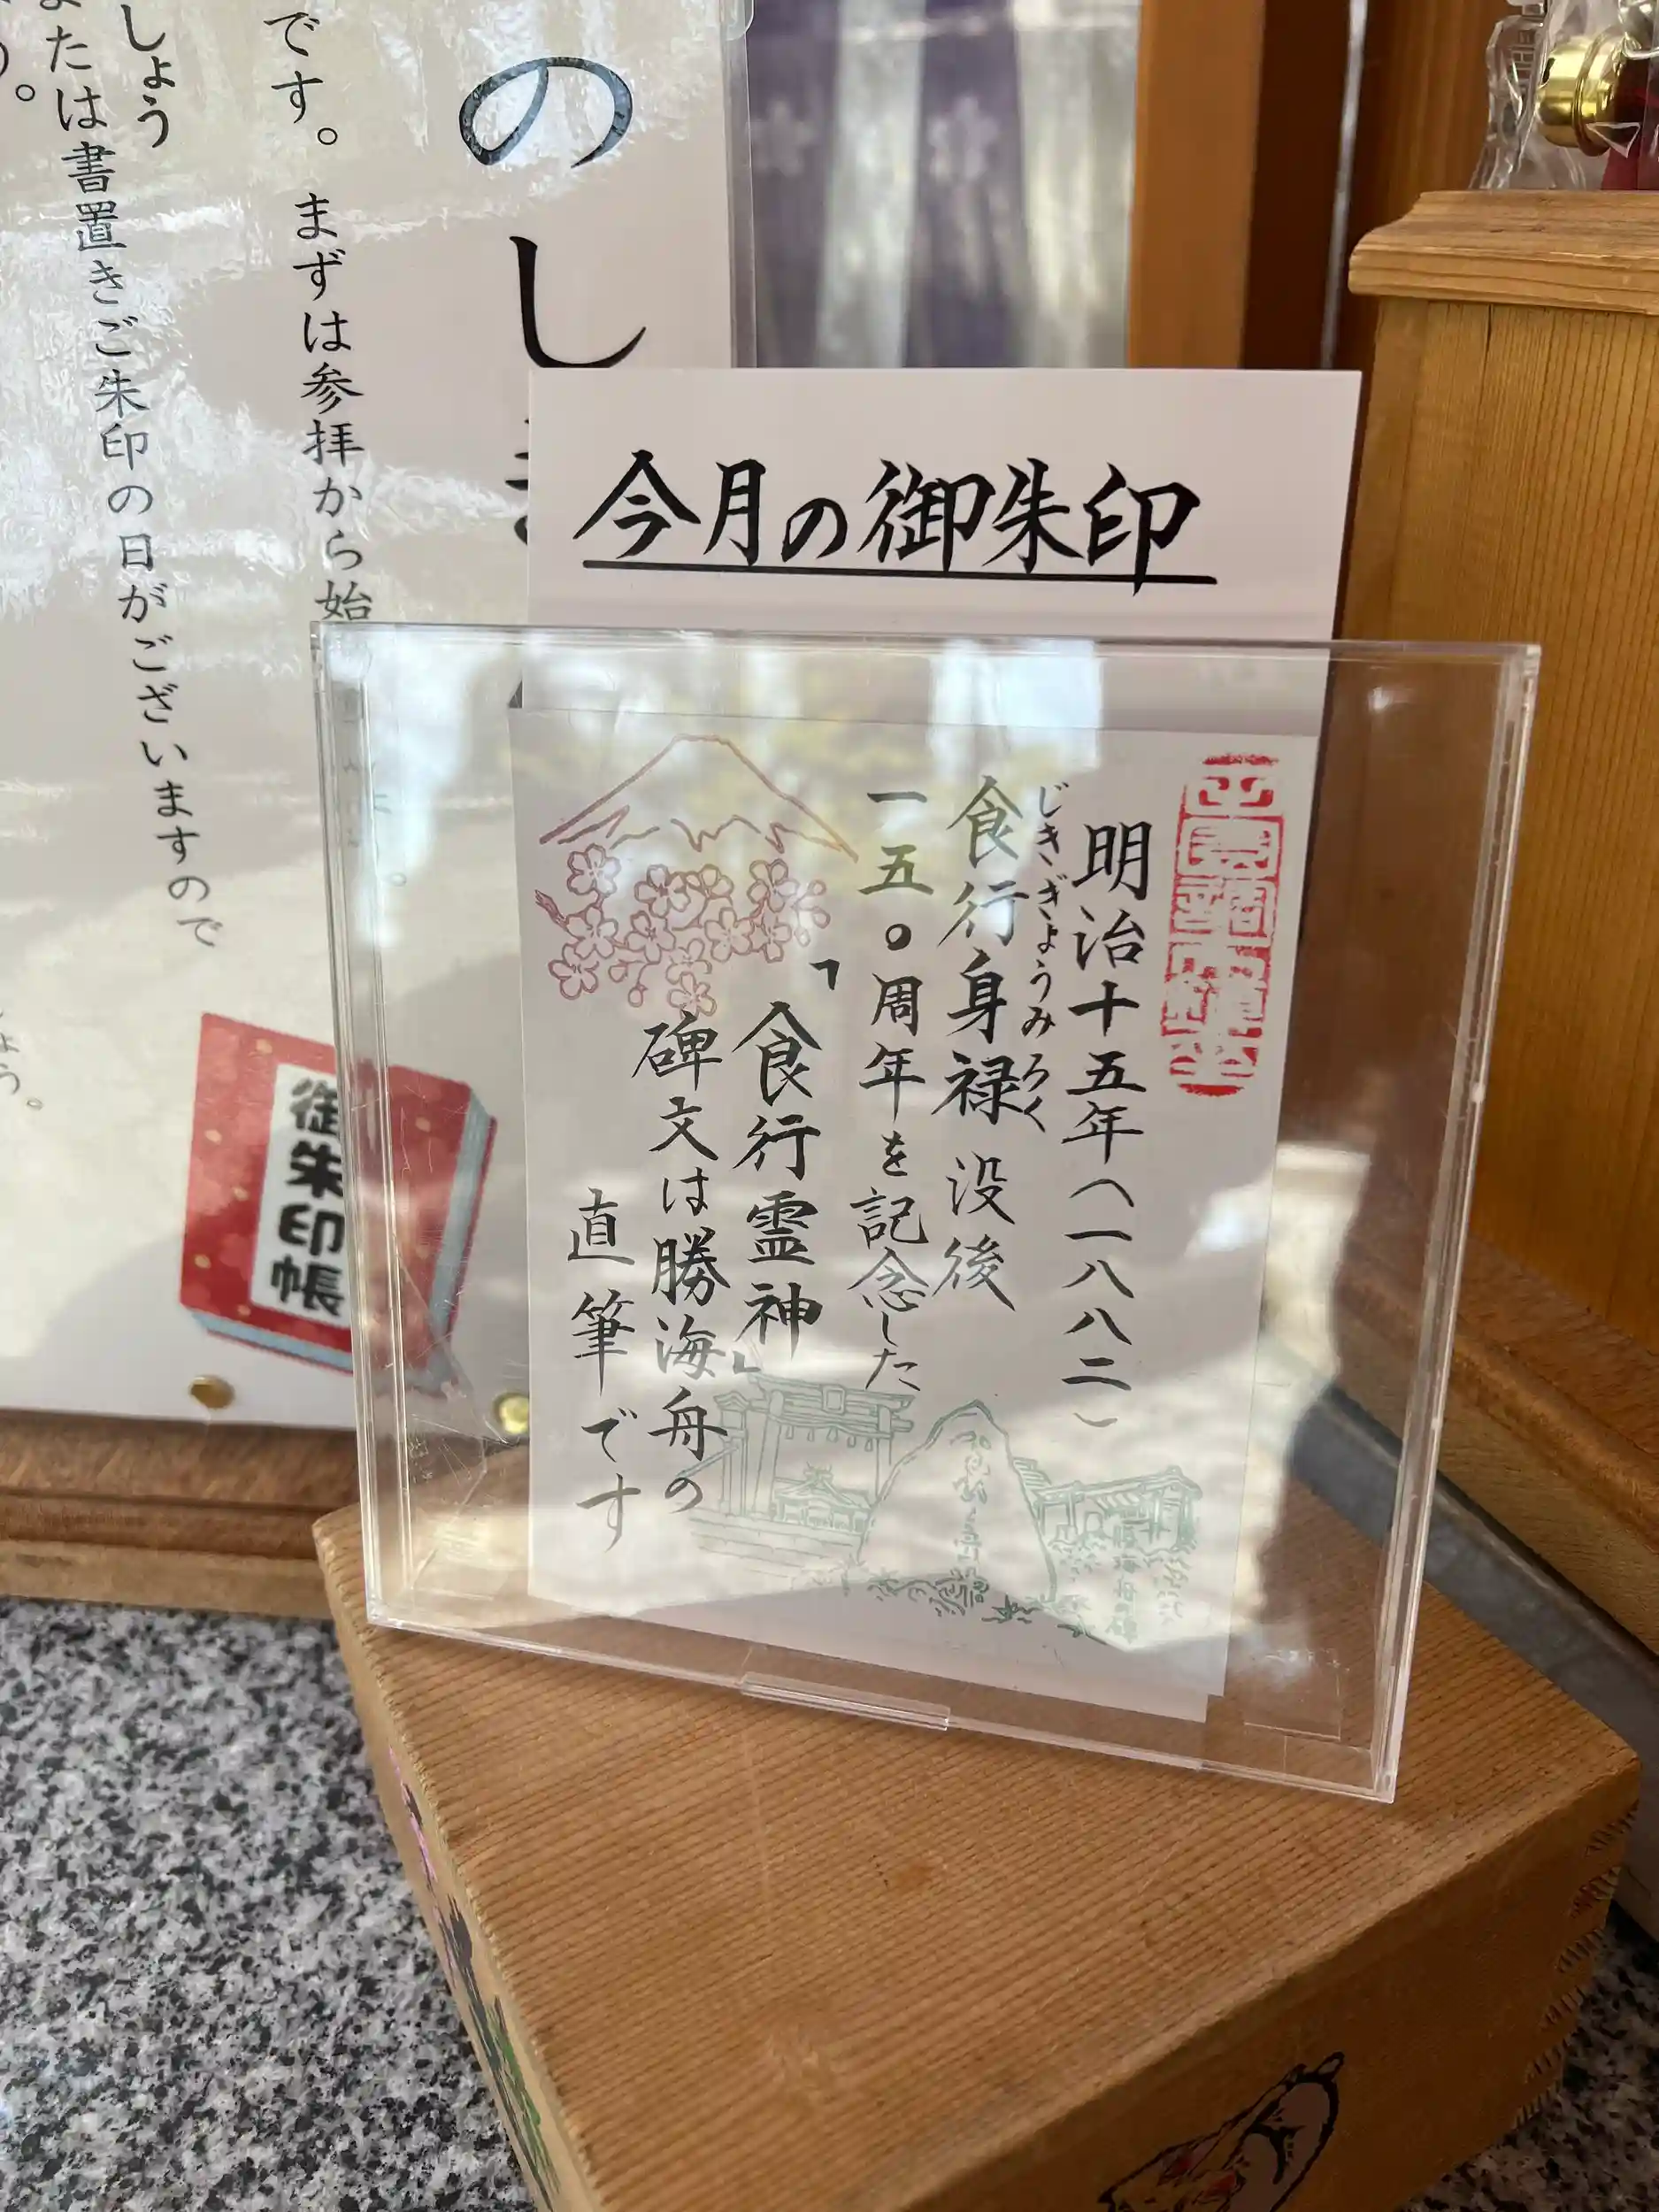 今月の御朱印
明治十五年(一八八二)
食行身禄 没後
じきぎょうみろく
一五〇周年を記念した
「食行霊神」
碑文は勝海舟の
直筆です
の し
です。まずは参拝から始
しょう
たは書置きご朱印の日がございますので
御朱印帳